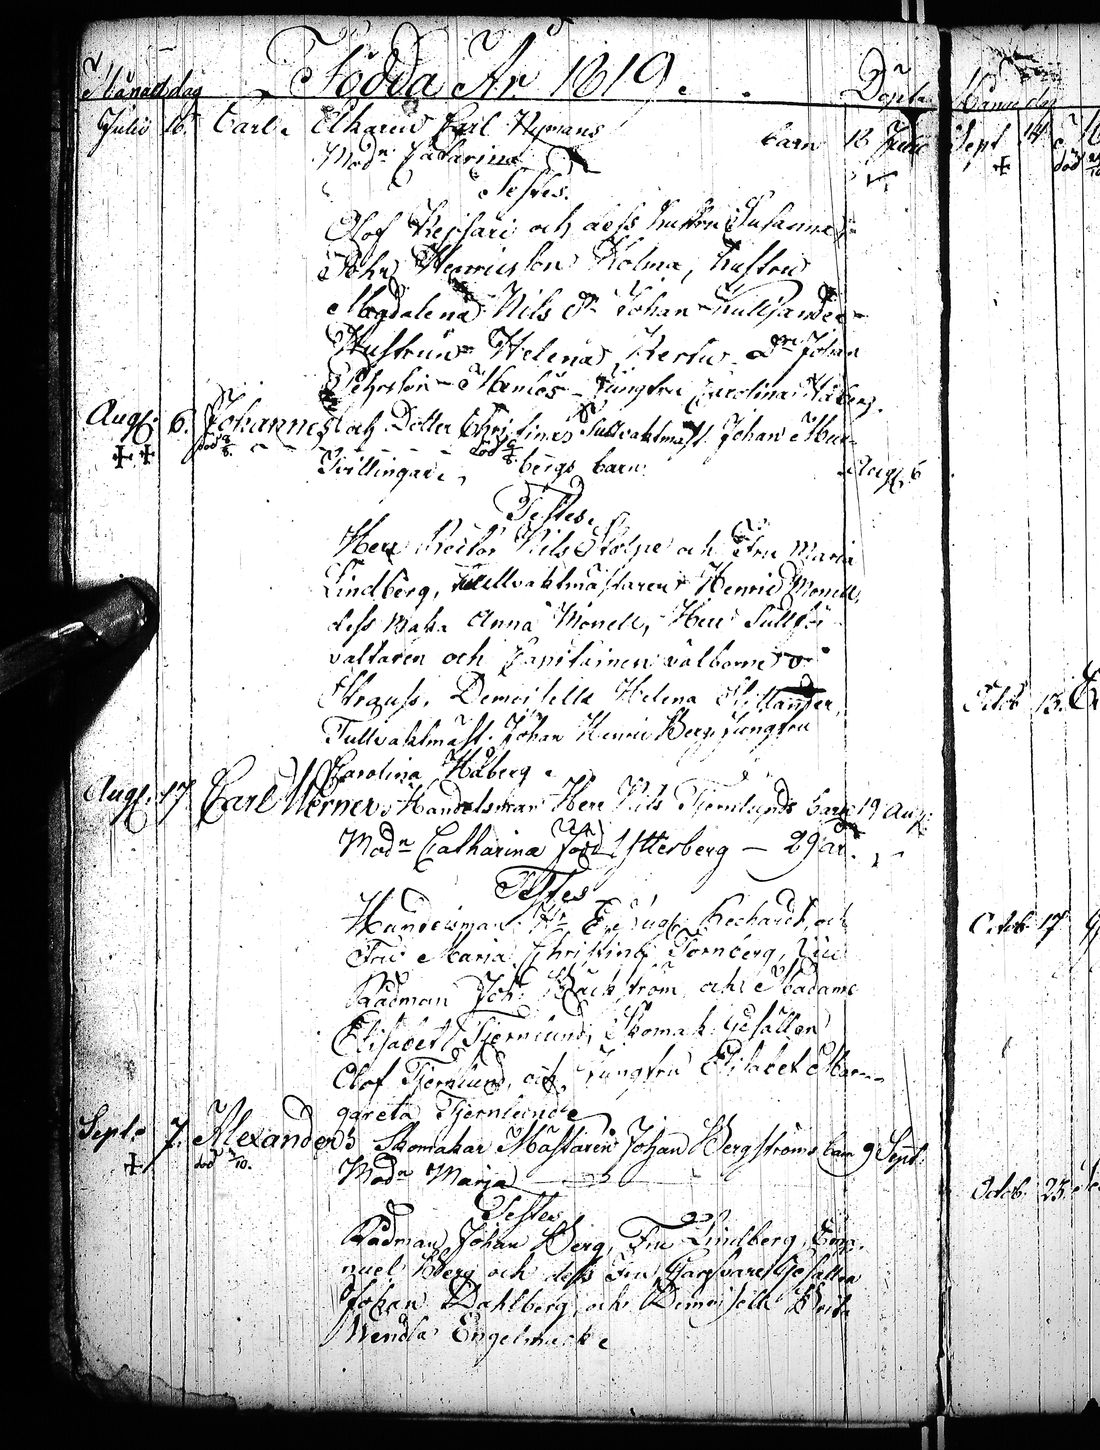 Månad dag Födda År 1819. Döpta
Julii 16. Carl. Elkarew Carl Nymans barn 18 Julii
Modn Catarina
Testes.
Olof Keisari och dess hustru Susanna
Johan Henricsson Kolma, hustru
Magdalena Nils Dr Johan
Hustrun Helena Johan
Pehrsson Jungfru Carolina Håberg.
Augst. 6. Johannes och Dotter Christina, Tullvaktmäst. Johan Mur-
död död
Tvillingar, bergs barn. Augst. 6
Testes.
Herr Rector Nils Stolpe och Fru Maria
Lindberg, Tullvaktmästaren Henric Monell,
dess Maka Anna Monell, Herr Tullför-
valtaren och Capitainen välborne v.
Strauss, Demoiselle Helena
Tullvaktmäst. Johan Henric Berg, Jungfru
Carolina Håberg.
Augst. 17 Carl Werner, Handelsman Herr Nils Tjernlunds barn 19 Aug:
Modn Catharina född Ytterberg — 29 år.
Testes
Handelsman Hr Bechardt, och
Fru Maria Christina Tornberg,
Rådman Joh: Bäckström och Madame
Elisabet Tjernlund, Skomak. Gesällen
Olof Tjernlund, och Jungfru Elisabet Mar-
gareta Tjernlund
Septr 7. Alexander, Skomakar Mästaren Johan Bergströms barn 9 Sept:
död /10.
Modn Maria
Testes
Rådman Johan Berg, Fru Lindberg, Ema-
nuel Berg och dess Fru, Garfvare Gesällen
Johan Dahlberg och Demoiselle Brita
Wendla Engelmarck
Månad dag
Sept 14
död
Octob 13.
Octob. 17
Octob. 23.